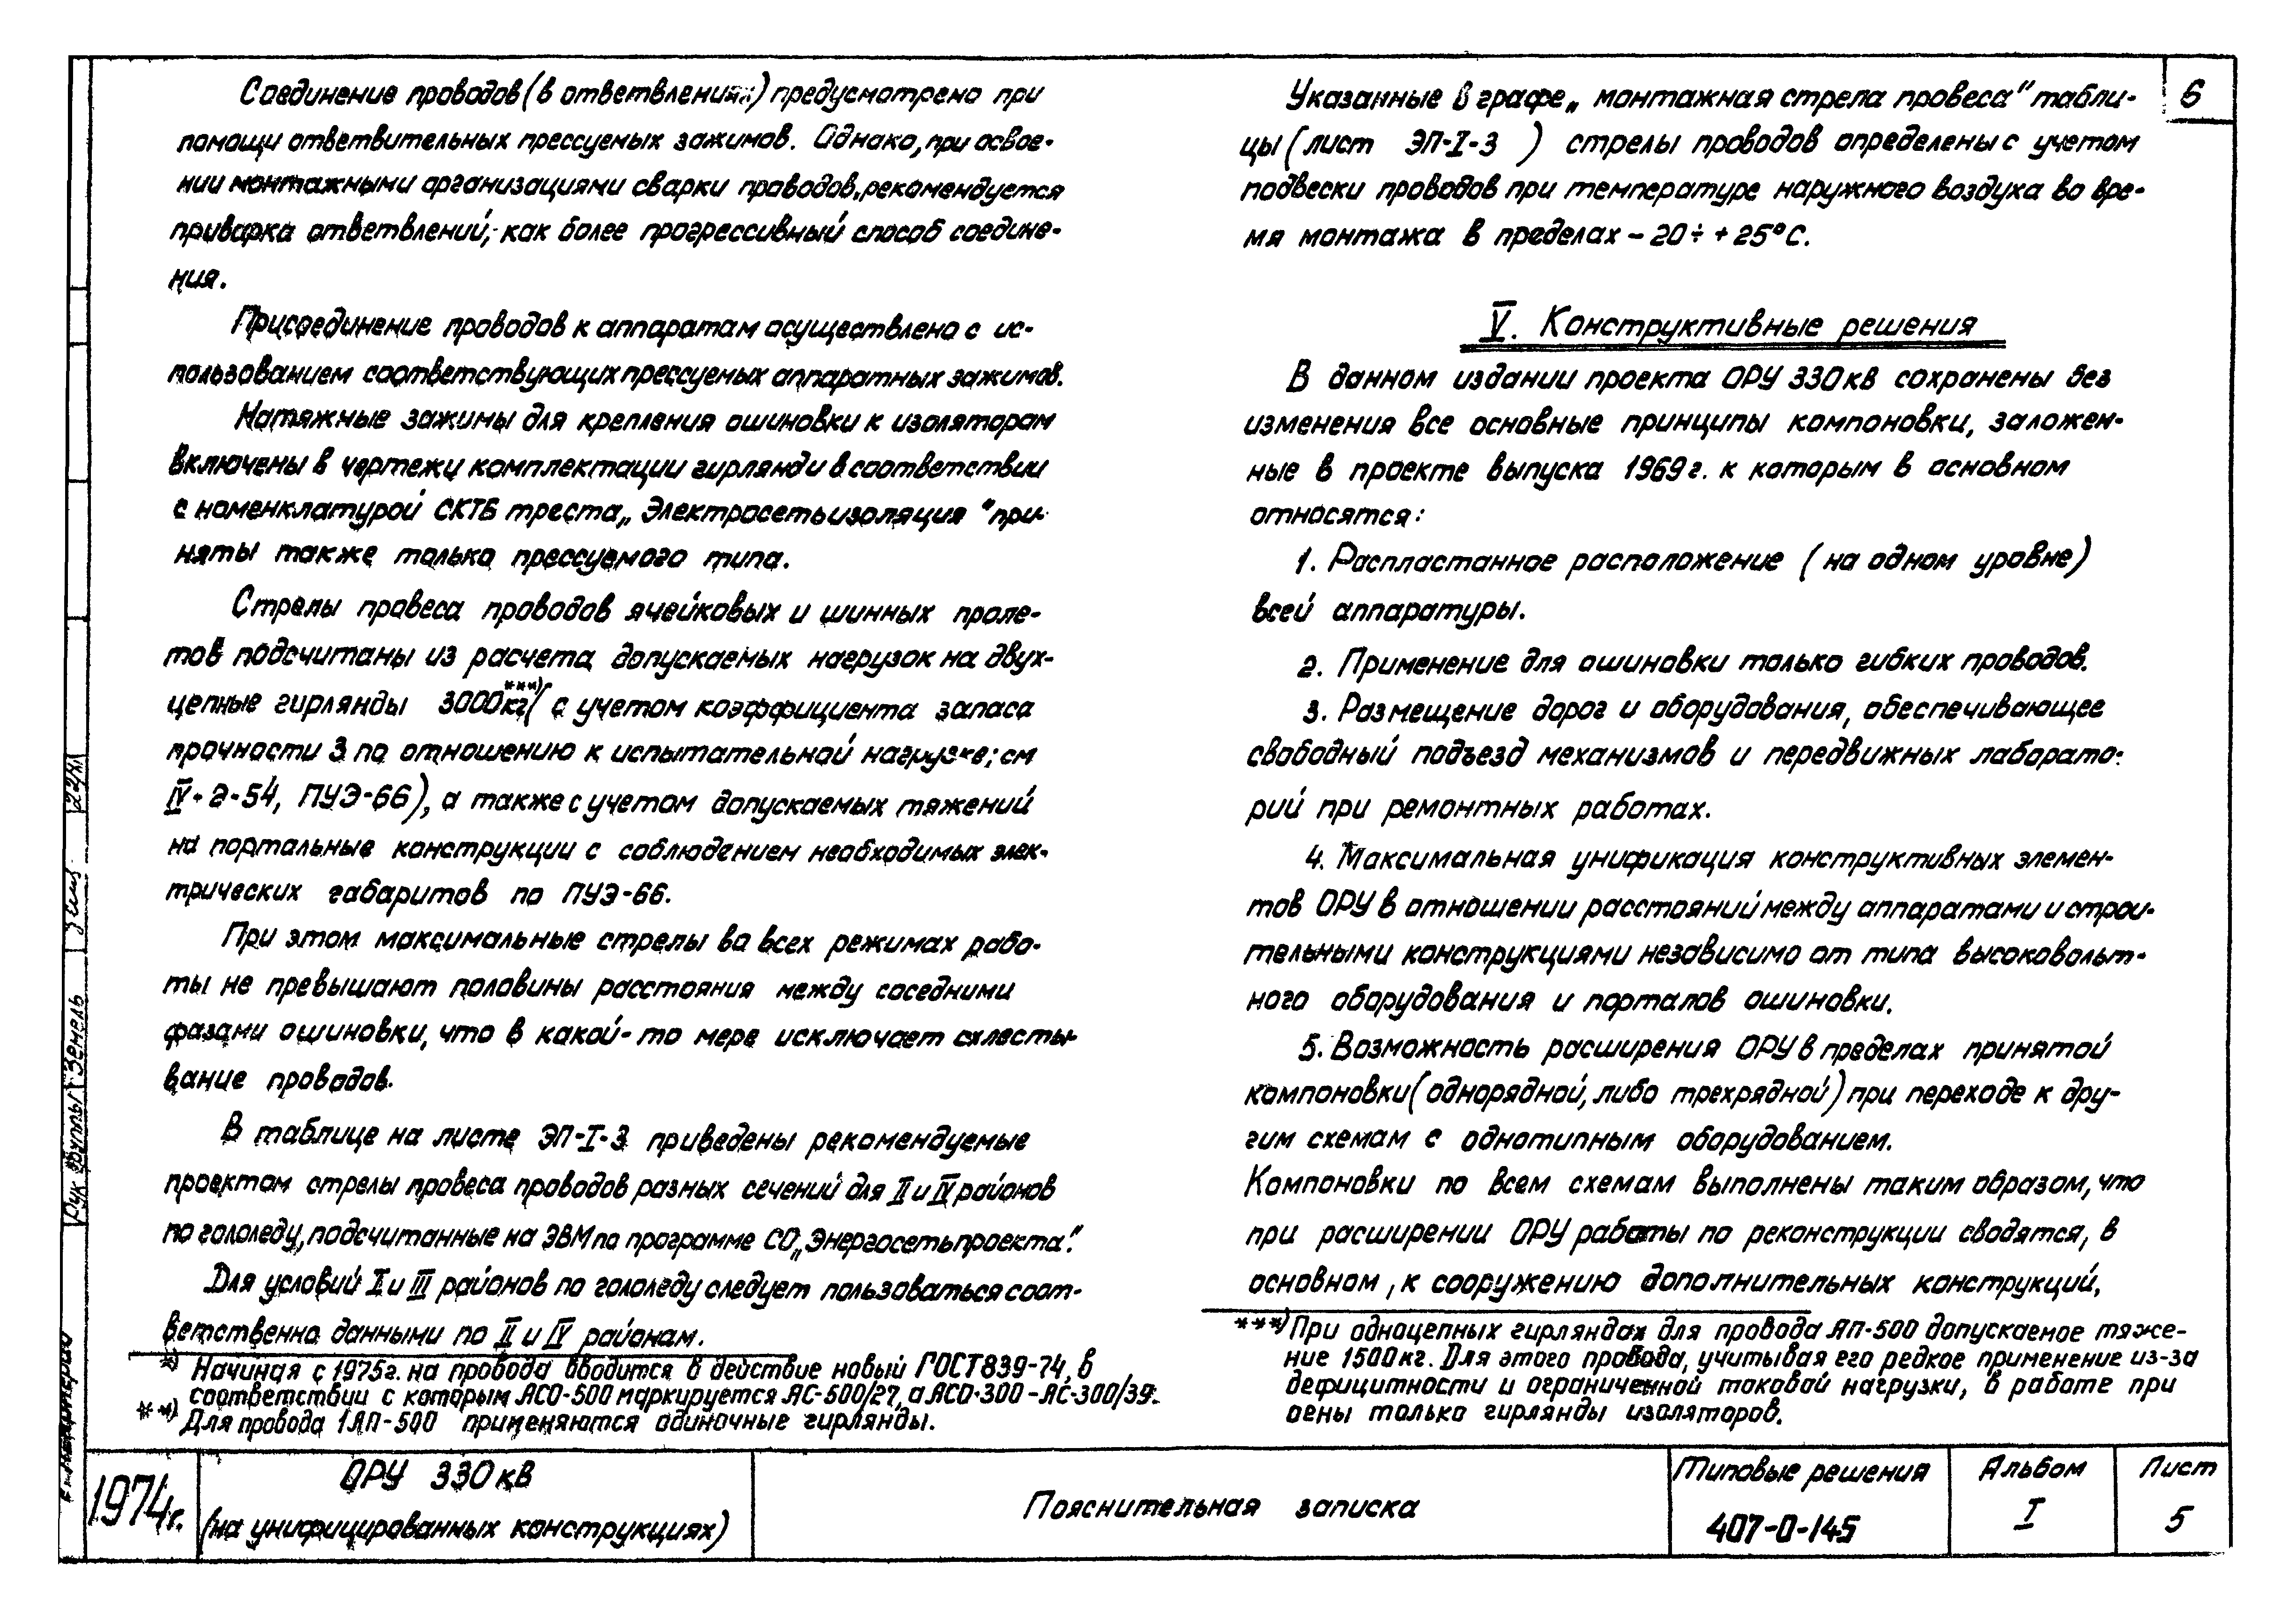 Соединение проводов (в ответвлениях) предусмотрено при
помощи ответвительных прессуемых зажимов. Однако, при освое-
нии монтажными организациями сварки проводов, рекомендуется
приварка ответвлений, как более прогрессивный способ соедине-
ния.
Присоединение проводов к аппаратам осуществлено с ис-
пользованием соответствующих прессуемых аппаратных зажимов.
Натяжные зажимы для крепления ошиновки к изоляторам
включены в чертежи комплектации гирлянд и в соответствии
с номенклатурой СКТБ треста „Электросетьизоляция" при-
няты также только прессуемого типа.
Стрелы провеса проводов ячейковых и шинных проле-
тов подсчитаны из расчета допускаемых нагрузок на двух-
цепные гирлянды 3000кг***) (с учетом коэффициента запаса
прочности 3 по отношению к испытательной нагрузке; см
IV-2-54, ПУЭ-66), а также с учетом допускаемых тяжений
на портальные конструкции с соблюдением необходимых элек-
трических габаритов по ПУЭ-66.
При этом максимальные стрелы во всех режимах рабо-
ты не превышают половины расстояния между соседними
фазами ошиновки, что в какой-то мере исключает схлесты-
вание проводов.
В таблице на листе ЭП-I-3 приведены рекомендуемые
проектом стрелы провеса проводов разных сечений для II и IV районов
по гололеду, подсчитанные на ЭВМ по программе СО „Энергосетьпроекта".
Для условий I и III районов по гололеду следует пользоваться соот-
ветственно данными по II и IV районам.
*) Начиная с 1975г. на провода вводится в действие новый ГОСТ 839-74, в
соответствии с которым АСО-500 маркируется АС-500/27, а АСО-300 - АС-300/39.
**) Для провода 1АП-500 применяются одиночные гирлянды.
6
Указанные в графе „монтажная стрела провеса" табли-
цы (лист ЭП-I-3 ) стрелы проводов определены с учетом
подвески проводов при температуре наружного воздуха во вре-
мя монтажа в пределах -20÷+25°С.
V. Конструктивные решения
В данном издании проекта ОРУ 330кв сохранены без
изменения все основные принципы компоновки, заложен-
ные в проекте выпуска 1969г. к которым в основном
относятся:
1. Распластанное расположение (на одном уровне)
всей аппаратуры.
2. Применение для ошиновки только гибких проводов.
3. Размещение дорог и оборудования, обеспечивающее
свободный подъезд механизмов и передвижных лаборато-
рий при ремонтных работах.
4. Максимальная унификация конструктивных элемен-
тов ОРУ в отношении расстояний между аппаратами и строи-
тельными конструкциями независимо от типа высоковольт-
ного оборудования и порталов ошиновки.
5. Возможность расширения ОРУ в пределах принятой
компоновки (однорядной, либо трехрядной) при переходе к дру-
гим схемам с однотипным оборудованием.
Компоновки по всем схемам выполнены таким образом, что
при расширении ОРУ работы по реконструкции сводятся, в
основном, к сооружению дополнительных конструкций,
***) При одноцепных гирляндах для провода АП-500 допускаемое тяже-
ние 1500кг. Для этого провода, учитывая его редкое применение из-за
дефицитности и ограниченной токовой нагрузки, в работе при
оены только гирлянды изоляторов.
1974г.
ОРУ 330кВ
(на унифицированных конструкциях)
Пояснительная записка
Типовые решения
407-0-145
Альбом
I
Лист
5
Рук группы Земель